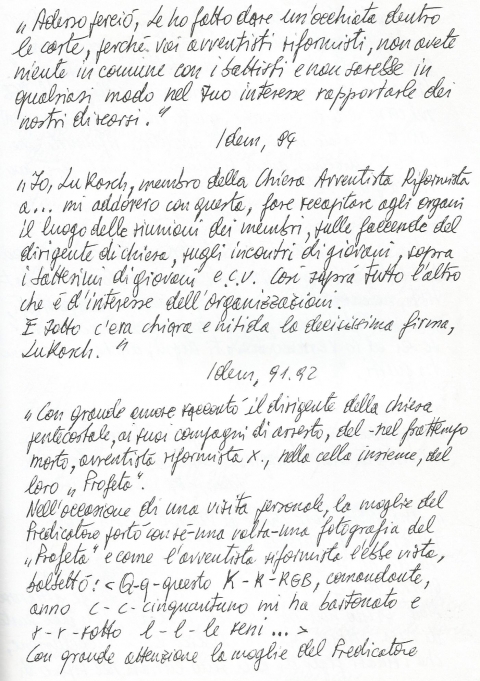 „Adesso perciò, Le ho fatto dare un'occhiata dentro
le carte, perché voi avventisti riformisti, non avete
niente in comune con i battisti e non sarebbe in
qualsiasi modo nel suo interesse rapportarle dei
nostri discorsi."
Idem, 94
„Io, Lukasch, membro della Chiesa Avventista Riformista
a... mi addovero con questa, fare recapitare agli organi
il luogo delle riunioni dei membri, sulle faccende del
dirigente di chiesa, sugli incontri di giovani, sopra
i battesimi di giovani e.c.v. Così soprá tutto l'altro
che é d'interesse dell'organizzazioni.
E sotto c'era chiara e nitida la decisissima firma,
Lukasch."
Idem, 91.92
„Con grande amore raccontó il dirigente della chiesa
pentecostale, ai suoi compagni di arresto, del -nel frattempo
morto, avventista riformista X., nella cella insieme, del
loro „Profeta".
Nell'occasione di una visita personale, la moglie del
Predicatore portó con sé-una volta-una fotografia del
„Profeta" e come l'avventista riformista l'ebbe vista,
balbettó: <Q-q-questo K-K-KGB, comandante,
anno c-c-cinquantuno mi ha bastonato e
r-r-rotto l-l-le reni...>
Con grande attenzione la moglie del Predicatore